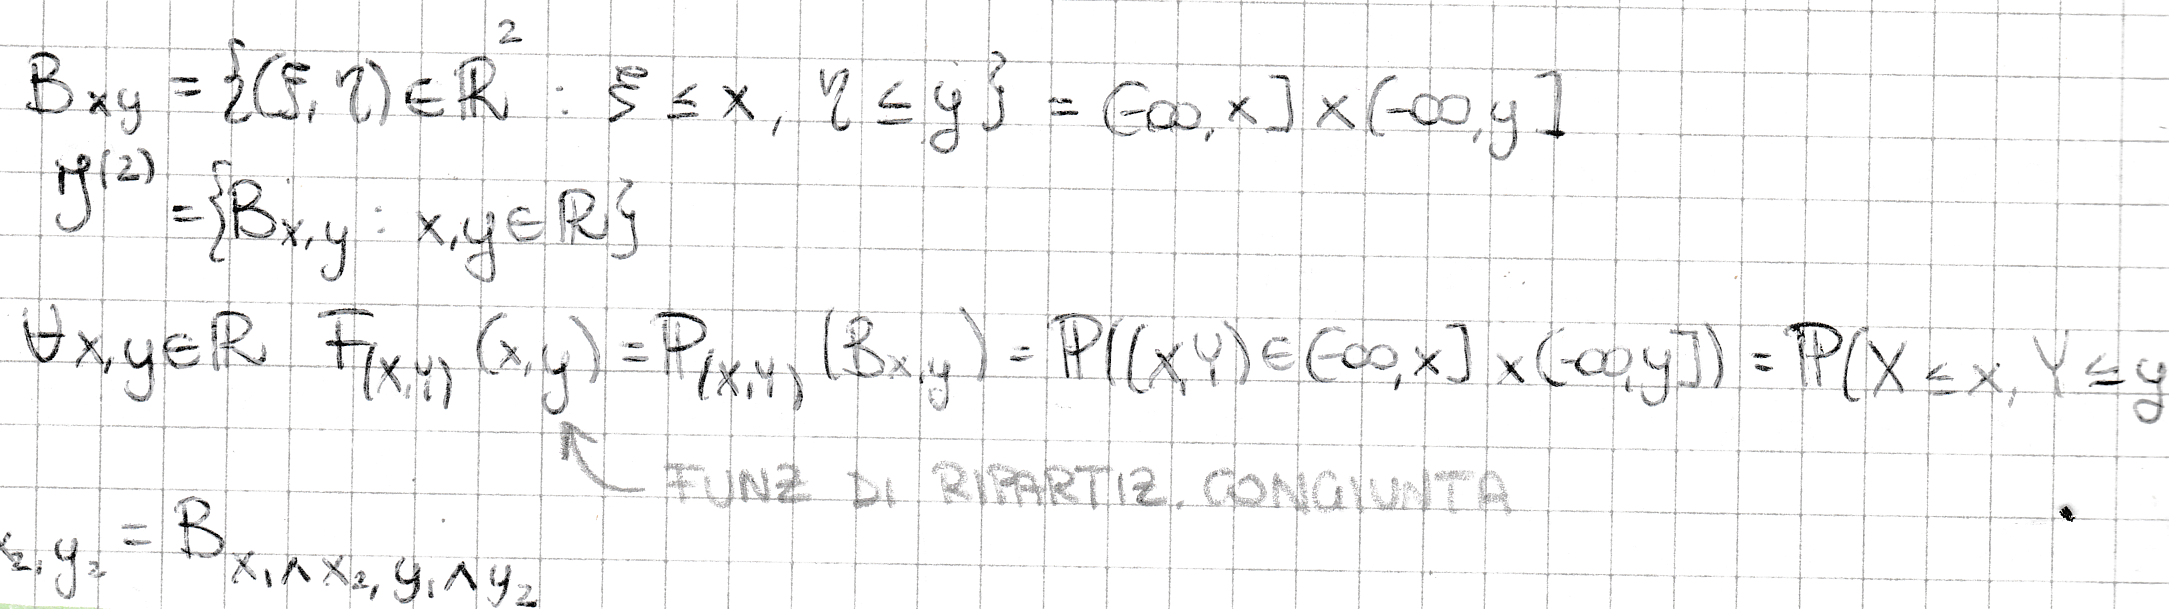 B_{xy} = {(ξ, η) ∈ ℝ² : ξ ≤ x, η ≤ y} = (-∞, x] × (-∞, y]
𝒥^{(2)} = {B_{x,y} : x,y ∈ ℝ}
∀x,y ∈ ℝ F_{(X,Y)} (x,y) = P_{(X,Y)} (B_{x,y}) = ℙ((X,Y) ∈ (-∞,x] × (-∞,y]) = ℙ(X ≤ x, Y ≤ y
FUNZ DI RIPARTIZ. CONGIUNTA
x_2, y_2 = B_{x_1∧x_2, y_1∧y_2}